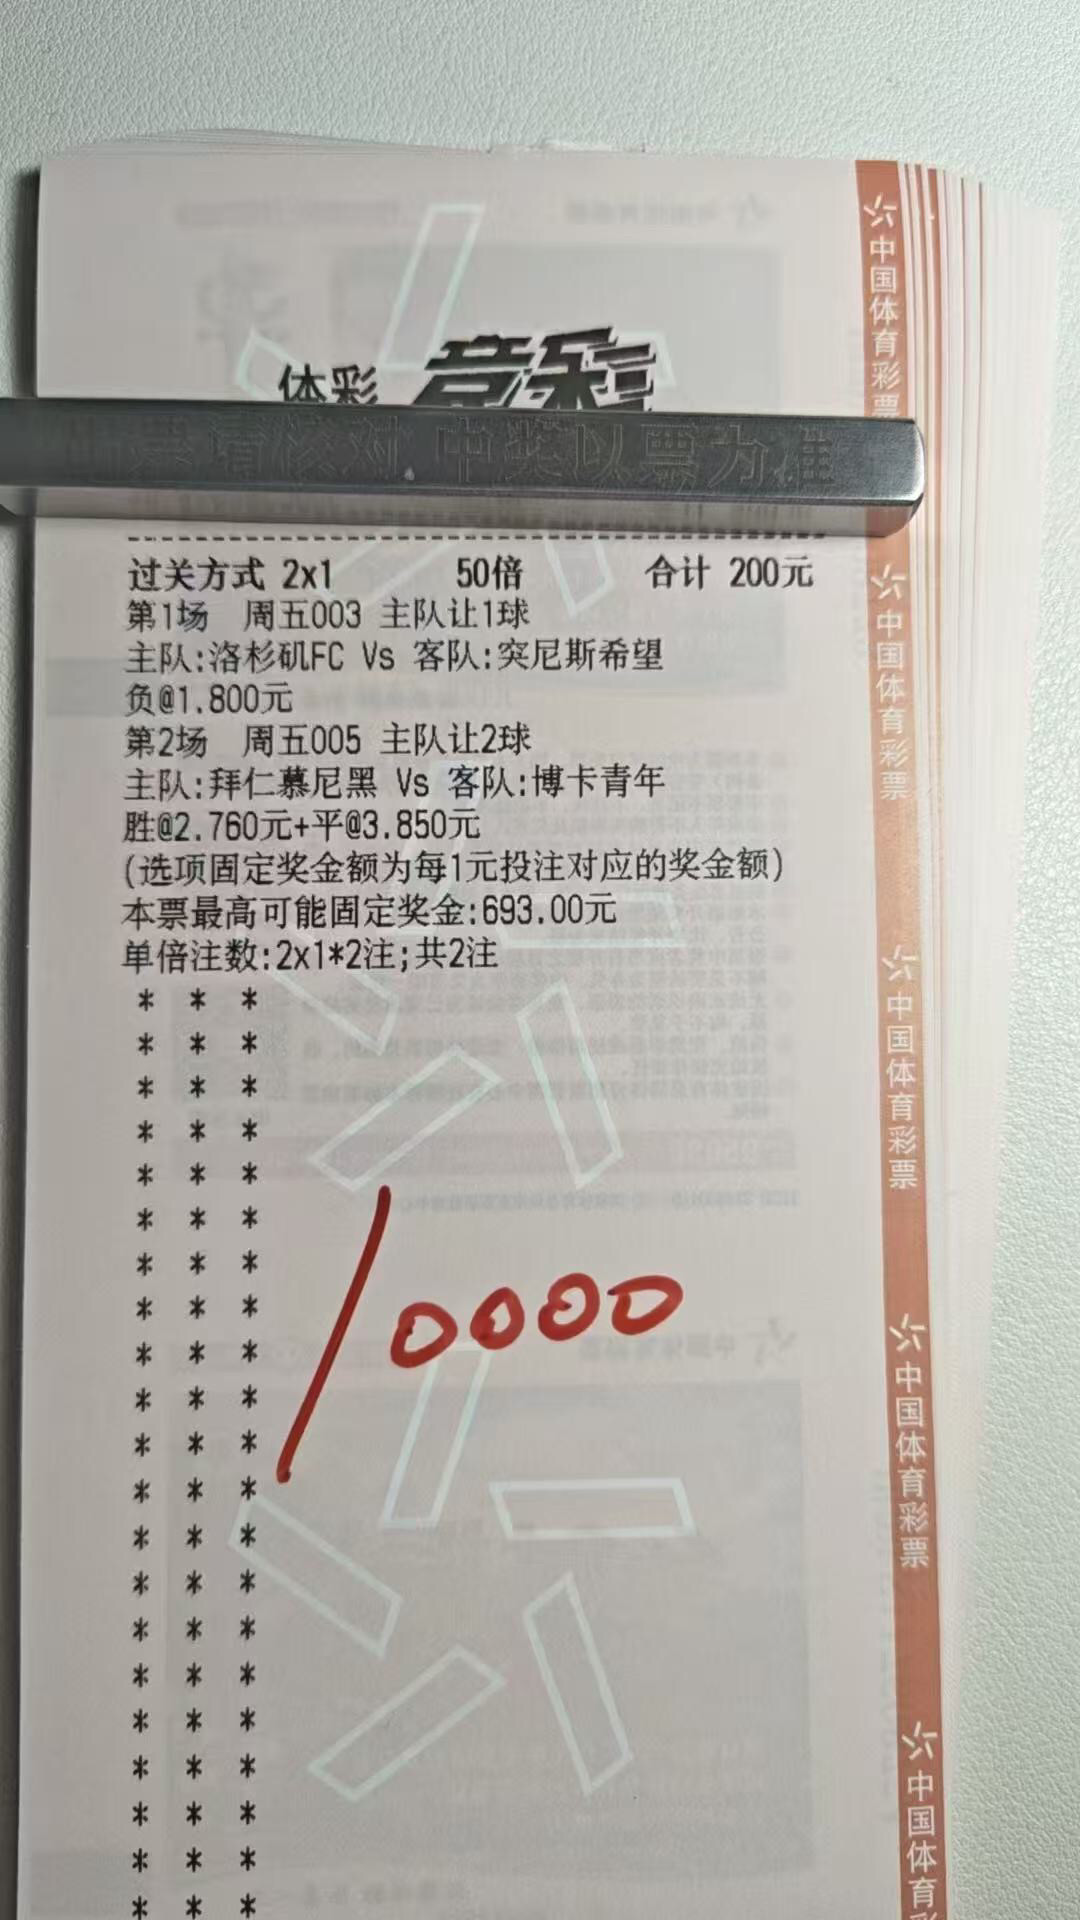 体彩 竞彩
请核对 中奖以票为准
过关方式 2x1 50倍 合计 200元
第1场 周五003 主队让1球
主队:洛杉矶FC Vs 客队:突尼斯希望
负@1.800元
第2场 周五005 主队让2球
主队:拜仁慕尼黑 Vs 客队:博卡青年
胜@2.760元+平@3.850元
(选项固定奖金额为每1元投注对应的奖金额)
本票最高可能固定奖金:693.00元
单倍注数:2x1*2注;共2注
* * *
* * *
* * *
* * *
* * *
* * *
* * *
* * *
* * *
* * *
* * *
* * *
* * *
* * *
* * *
* * *
* * *
* * *
* * *
* * *
* * *
10000
中国体育彩票
中国体育彩票
中国体育彩票
中国体育彩票
中国体育彩